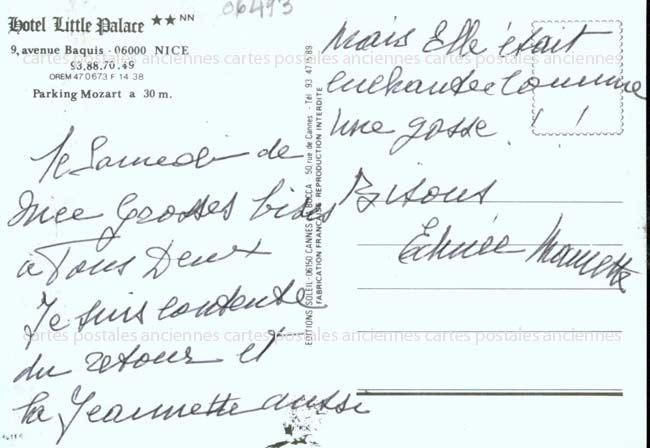 Hotel Little Palace ★★ NN
9, avenue Baquis - 06000 NICE
93.88.70.49
OREM 470 673 F 14 38
Parking Mozart a 30 m.
06493
le Samedi de
Nice Grosses bises
à Tous Deux
Je suis contente
du retour et
la Jeannette aussi
EDITIONS SOLEIL - 06150 CANNES LA BOCCA - 50, rue de Cannes - Tél 93 47 15 89
FABRICATION FRANÇAISE REPRODUCTION INTERDITE
Mais Elle était
enchantée comme
une gosse ! !
Bisous
Mamette
cartes postales anciennes cartes postales anciennes cartes postales anciennes
cartes postales anciennes cartes postales anciennes cartes postales anciennes